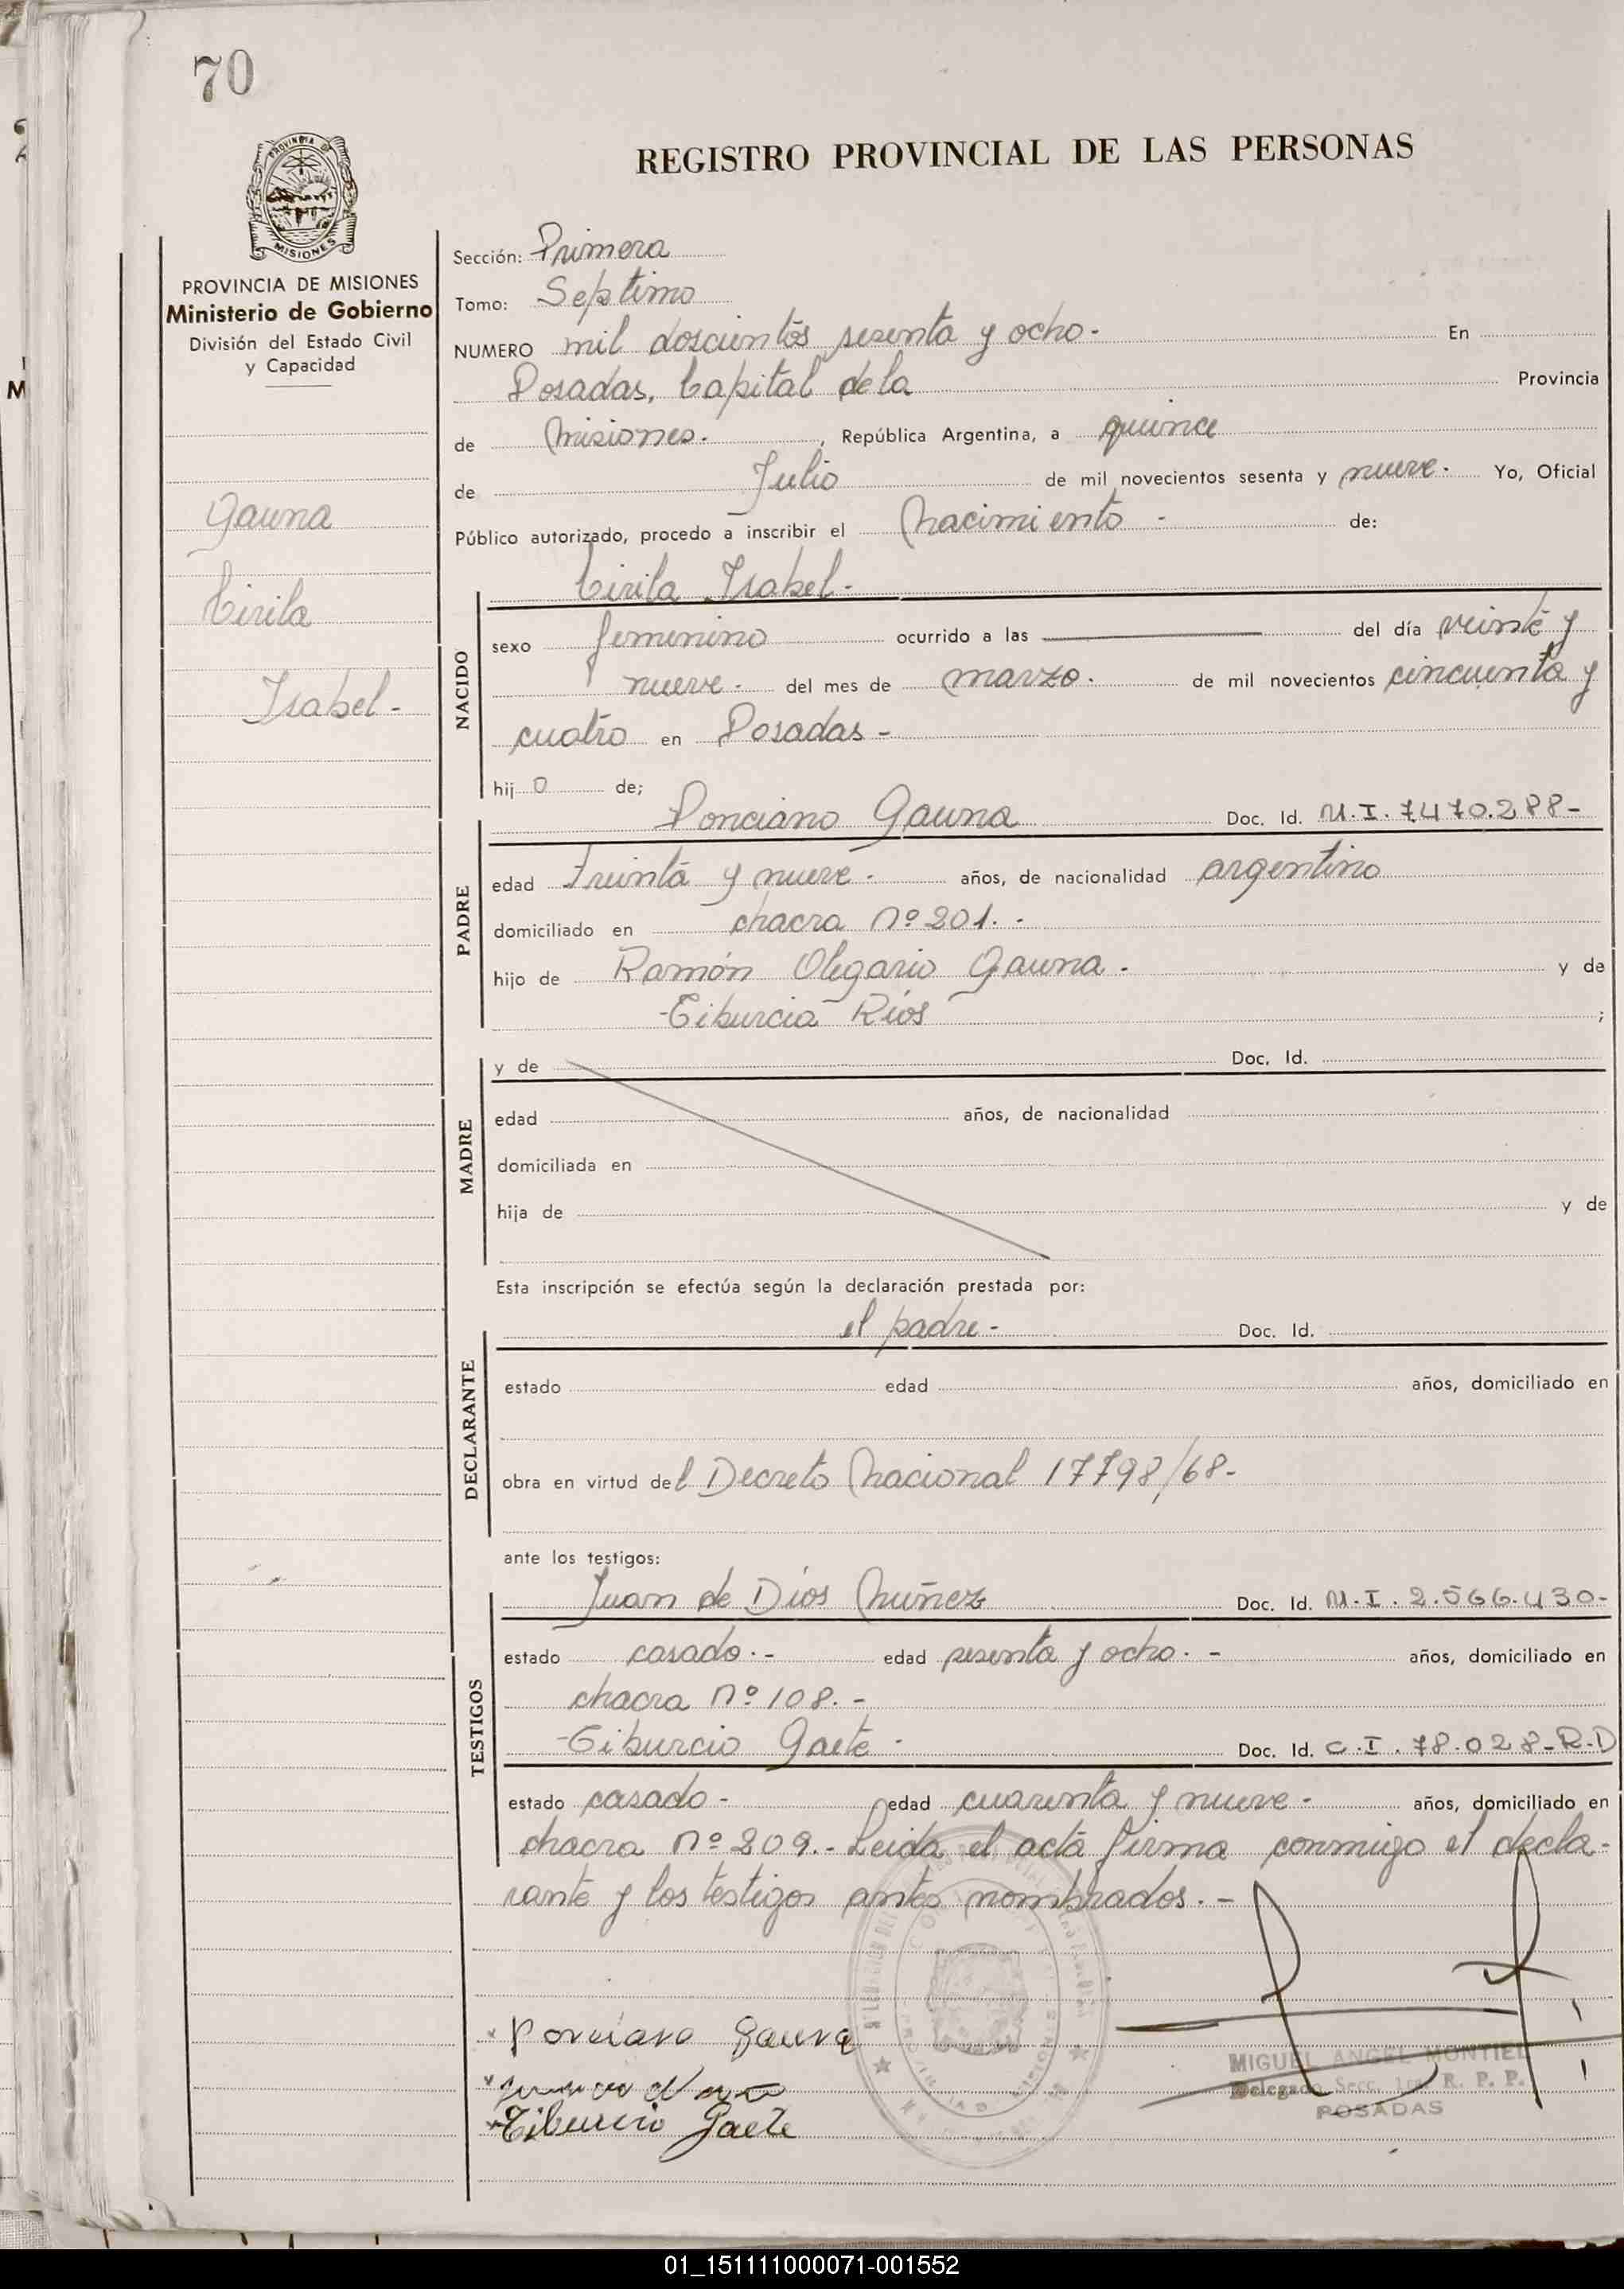 70
PROVINCIA DE
MISIONES
PROVINCIA DE MISIONES
Ministerio de Gobierno
División del Estado Civil
y Capacidad
Gauna
Cirila
Isabel -
REGISTRO PROVINCIAL DE LAS PERSONAS
Sección: Primera
Tomo: Septimo
NUMERO mil doscientos sesenta y ocho - En
Posadas, Capital de la Provincia
de Misiones. , República Argentina, a quince
de Julio de mil novecientos sesenta y nueve. Yo, Oficial
Público autorizado, procedo a inscribir el Nacimiento - de:
Cirila Isabel -
NACIDO
sexo femenino ocurrido a las del día veinte y
nueve - del mes de marzo. de mil novecientos cincuenta y
cuatro en Posadas -
hijo de;
PADRE
Ponciano Gauna Doc. Id. M.I. 7470.288-
edad treinta y nueve - años, de nacionalidad argentino
domiciliado en chacra nº 201. -
hijo de Ramón Olegario Gauna - y de
Tiburcia Ríos ;
MADRE
y de Doc. Id.
edad años, de nacionalidad
domiciliada en
hija de y de
Esta inscripción se efectúa según la declaración prestada por:
DECLARANTE
el padre - Doc. Id.
estado edad años, domiciliado en
obra en virtud del Decreto Nacional 17798/68-
ante los testigos:
TESTIGOS
Juan de Dios Nuñez Doc. Id. M.I. 2.566.430-
estado casado. - edad sesenta y ocho. - años, domiciliado en
chacra nº 108. -
Tiburcio Gaete - Doc. Id. C.I. 78.028-R.D
estado casado - edad cuarenta y nueve - años, domiciliado en
chacra nº 209. - Leida el acta firma conmigo el decla-
rante y los testigos antes nombrados. -
Ponciano Gauna
Tiburcio Gaete
MIGUEL ANGEL MONTIEL
Delegado Secc. 1ra. R. P. P.
POSADAS
01_151111000071-001552